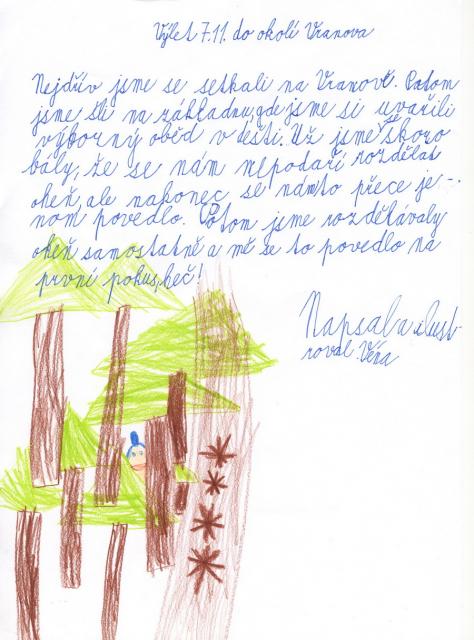 Výlet 7.11. do okolí Vranova
Nejdřív jsme se setkali na Vranově. Potom
jsme šli na základnu, gde jsme si uvařili
výborný oběd v dešti. Už jsme se skoro
bály, že se nám nepodaří rozdělat
oheň, ale nakonec se námto přece je-
nom povedlo. Potom jsme rozdělávaly
oheň samostatně a mě se to povedlo na
první pokus, heč!
Napsal a ilust
roval: Véna